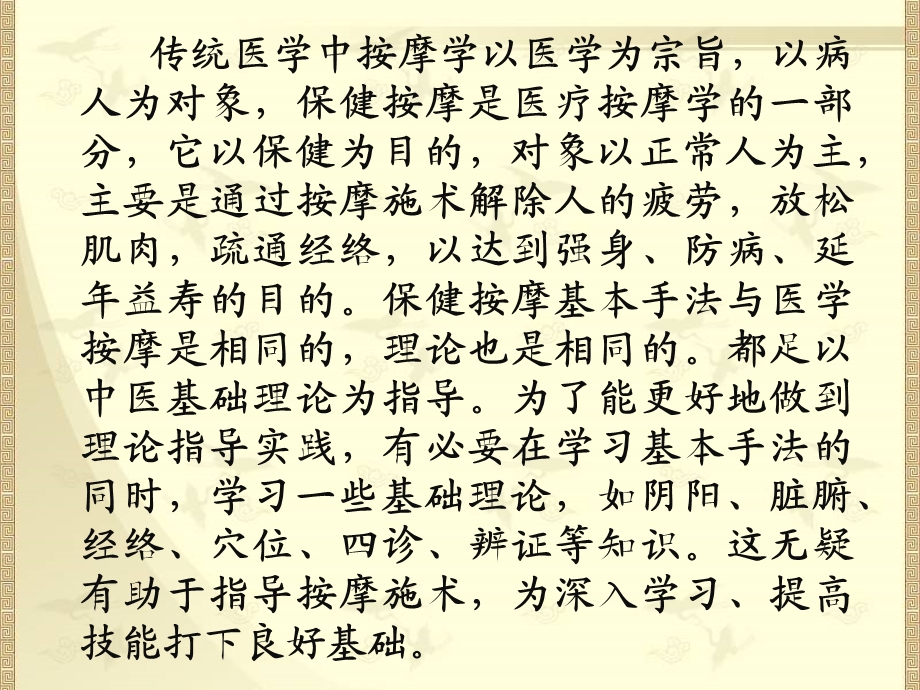 传统医学中按摩学以医学为宗旨，以病
人为对象，保健按摩是医疗按摩学的一部
分，它以保健为目的，对象以正常人为主，
主要是通过按摩施术解除人的疲劳，放松
肌肉，疏通经络，以达到强身、防病、延
年益寿的目的。保健按摩基本手法与医学
按摩是相同的，理论也是相同的。都足以
中医基础理论为指导。为了能更好地做到
理论指导实践，有必要在学习基本手法的
同时，学习一些基础理论，如阴阳、脏腑、
经络、穴位、四诊、辨证等知识。这无疑
有助于指导按摩施术，为深入学习、提高
技能打下良好基础。